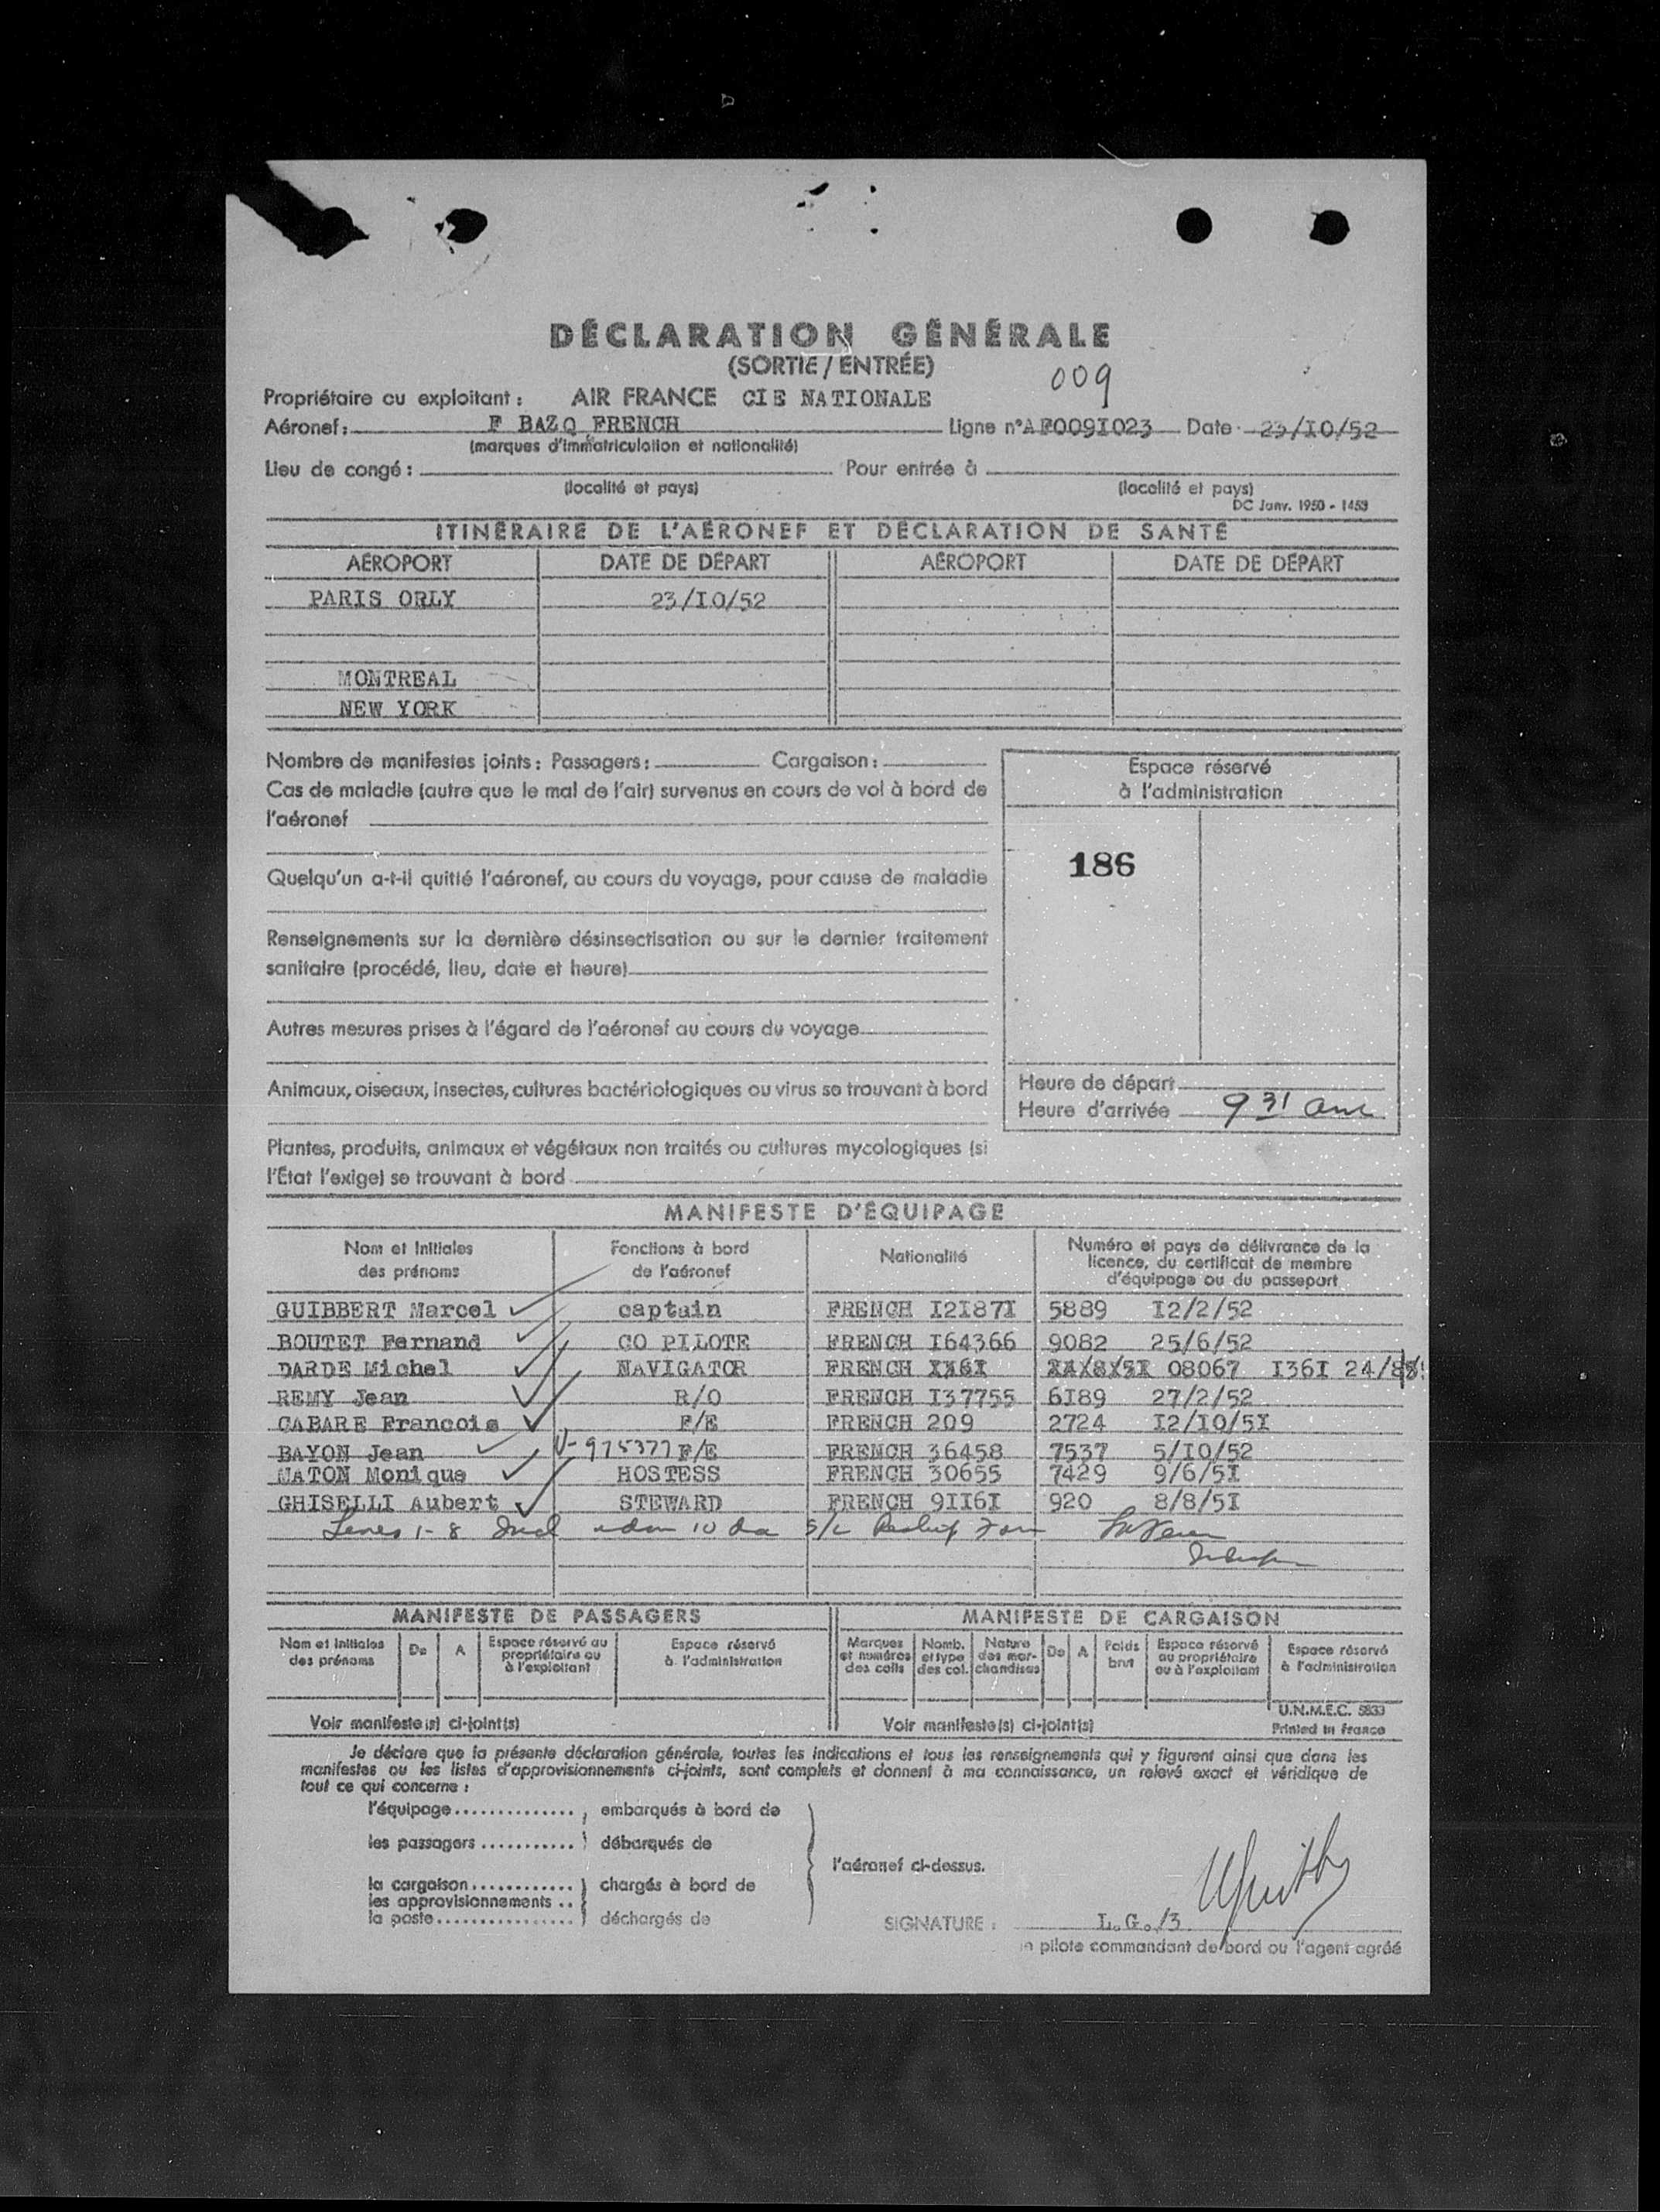 DÉCLARATION GÉNÉRALE
(SORTIE / ENTRÉE)
009
Propriétaire ou exploitant : AIR FRANCE CIE NATIONALE
Aéronef : F BAZQ FRENCH Ligne n° AF009I023 Date 23/I0/52
(marques d'immatriculation et nationalité)
Lieu de congé : Pour entrée à
(localité et pays) (localité et pays)
DC Janv. 1950 - 1453
ITINÉRAIRE DE L'AÉRONEF ET DÉCLARATION DE SANTÉ
AÉROPORT DATE DE DÉPART AÉROPORT DATE DE DÉPART
PARIS ORLY 23/I0/52
MONTREAL
NEW YORK
Nombre de manifestes joints : Passagers : Cargaison :
Cas de maladie (autre que le mal de l'air) survenus en cours de vol à bord de
l'aéronef
Quelqu'un a-t-il quitté l'aéronef, au cours du voyage, pour cause de maladie
Renseignements sur la dernière désinsectisation ou sur le dernier traitement
sanitaire (procédé, lieu, date et heure)
Autres mesures prises à l'égard de l'aéronef au cours du voyage
Animaux, oiseaux, insectes, cultures bactériologiques ou virus se trouvant à bord
Plantes, produits, animaux et végétaux non traités ou cultures mycologiques (si
l'État l'exige) se trouvant à bord
Espace réservé
à l'administration
186
Heure de départ
Heure d'arrivée 9 31 am
MANIFESTE D'ÉQUIPAGE
Nom et Initiales des prénoms Fonctions à bord de l'aéronef Nationalité Numéro et pays de délivrance de la licence, du certificat de membre d'équipage ou du passeport
GUIBBERT Marcel captain FRENCH I2I87I 5889 I2/2/52
BOUTET Fernand CO PILOTE FRENCH I64366 9082 25/6/52
DARDE Michel NAVIGATOR FRENCH 08067 I36I 24/8
REMY Jean R/O FRENCH I37755 6I89 27/2/52
CABARE Francois F/E FRENCH 209 2724 I2/I0/5I
BAYON Jean V-975377 F/E FRENCH 36458 7537 5/I0/52
MATON Monique HOSTESS FRENCH 30655 7429 9/6/5I
GHISELLI Aubert STEWARD FRENCH 9II6I 920 8/8/5I
Lines 1-8 Incl adm 10 da S/L
MANIFESTE DE PASSAGERS MANIFESTE DE CARGAISON
Nom et Initiales des prénoms De A Espace réservé au propriétaire ou à l'exploitant Espace réservé à l'administration Marques et numéros des colis Nomb. et type des col. Nature des marchandises De A Poids brut Espace réservé au propriétaire ou à l'exploitant Espace réservé à l'administration
U.N.M.E.C. 5833
Voir manifeste(s) ci-joint(s) Voir manifeste(s) ci-joint(s) Printed in France
Je déclare que la présente déclaration générale, toutes les indications et tous les renseignements qui y figurent ainsi que dans les
manifestes ou les listes d'approvisionnements ci-joints, sont complets et donnent à ma connaissance, un relevé exact et véridique de
tout ce qui concerne :
l'équipage .............. embarqués à bord de
les passagers ........... débarqués de
l'aéronef ci-dessus.
la cargaison ............ chargés à bord de
les approvisionnements ..
la poste ................. déchargés de
SIGNATURE : L.G./3
le pilote commandant de bord ou l'agent agréé